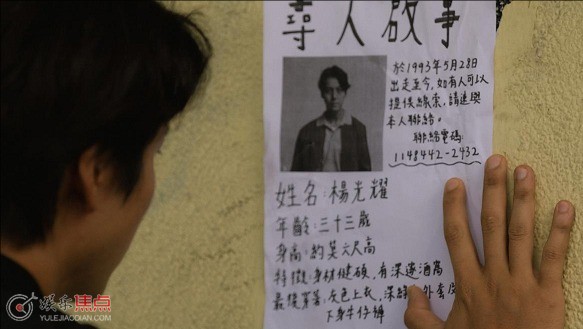 尋人啟事
於1993年5月28日
出走至今,如有人可以
提供線索,請速與
本人聯絡。
聯絡電碼:
1148442-2432
姓名:楊光耀
年齡:三十三歲
身高:約莫六尺高
特徵:身材健碩,有深邃酒窩
最後穿著:灰色上衣,深綠 外套
下身牛仔褲
娱乐焦点
YULEJIAODIAN.COM